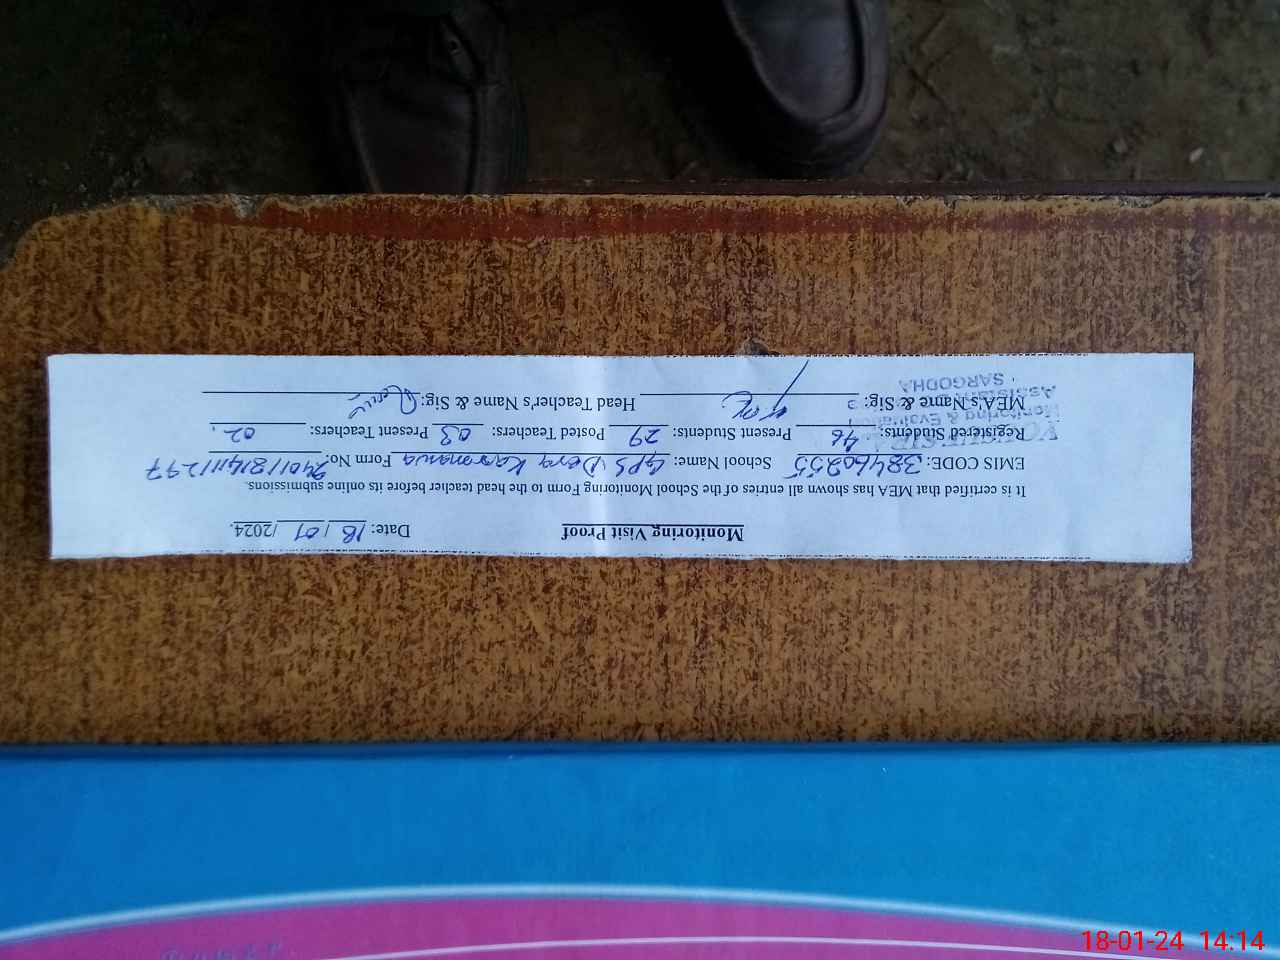 Monitoring Visit Proof Date: 18/01/2024.
It is certified that MEA has shown all entries of the School Monitoring Form to the head teacher before its online submissions.
EMIS CODE: 38460255 School Name: GPS Dera Form No:
Registered Students: 46 Present Students: 29 Posted Teachers: 03 Present Teachers: 02.
MEA's Name & Sig: Head Teacher's Name & Sig:
Monitoring & Evaluation
Assistant
SARGODHA
18-01-24 14:14